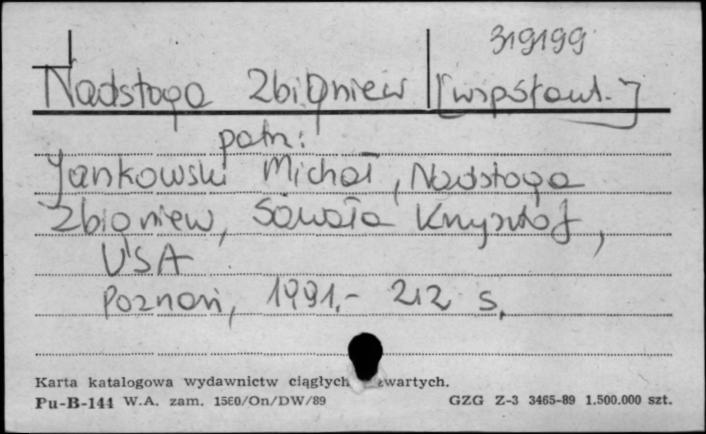 319199
Nadstoga Zbigniew [współaut.]
patrz:
Jankowski Michał, Nadstoga
Zbigniew, Sawala Krzysztof,
USA
Poznań, 1991.- 212 s.
Karta katalogowa wydawnictw ciągłych wartych.
Pu-B-144 W.A. zam. 1560/On/DW/89 GZG Z-3 3465-89 1.500.000 szt.